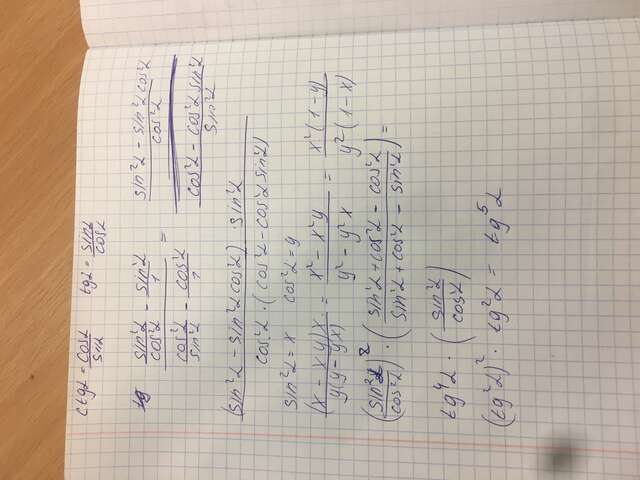 ctgα = cosα/sinα tgα = sinα/cosα
(sin²α/cos²α - sin²α/1)/(cos²α/sin²α - cos²α/1) = ((sin²α - sin²α cos²α)/cos²α)/((cos²α - cos²α sin²α)/sin²α)
((sin²α - sin²α cos²α) · sin²α)/(cos²α · (cos²α - cos²α sin²α))
sin²α = x cos²α = y
(x - xy)x/y(y - yx) = (x² - x²y)/(y² - y²x) = x²(1-y)/y²(1-x)
(sin²α/cos²α)² · ((sin²α + cos²α - cos²α)/(sin²α + cos²α - sin²α)) =
tg⁴α · (sin²α/cos²α)
(tg²α)² · tg²α = tg⁵α